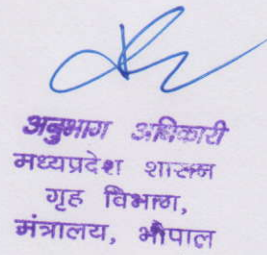 अनुभाग अधिकारी
मध्यप्रदेश शासन
गृह विभाग,
मंत्रालय, भोपाल